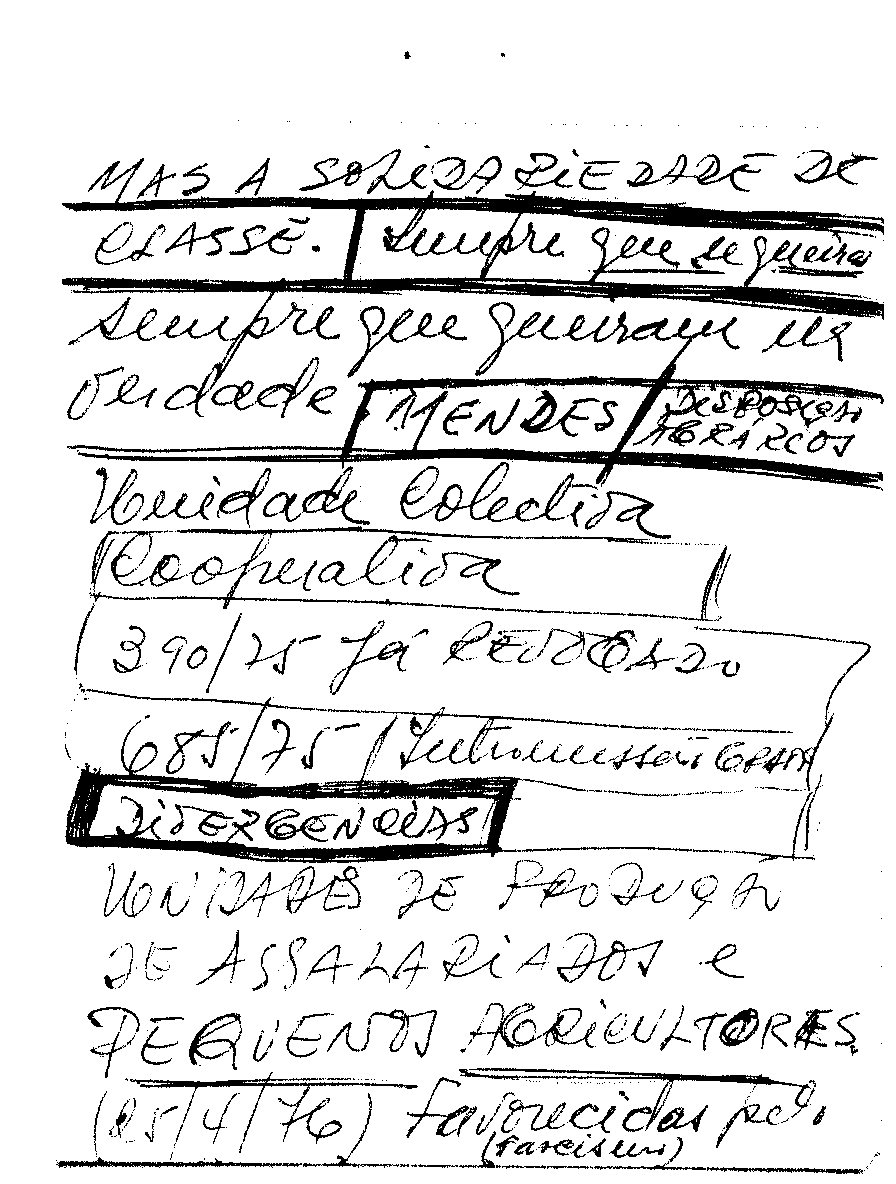 MAS A SOLIDARIEDADE DE
CLASSE. Sempre que se queira
sempre que queiram na
verdade MENDES
AGRÁRIOS
Unidade Colectiva
Cooperativa
390/75 Já REVOGADO
685/75 Intromissão
DIVERGENCIAS
UNIDADES DE PRODUÇÃO
DE ASSALARIADOS e
PEQUENOS AGRICULTORES.
(25/4/76) Favorecidas pelo
(fascismo)